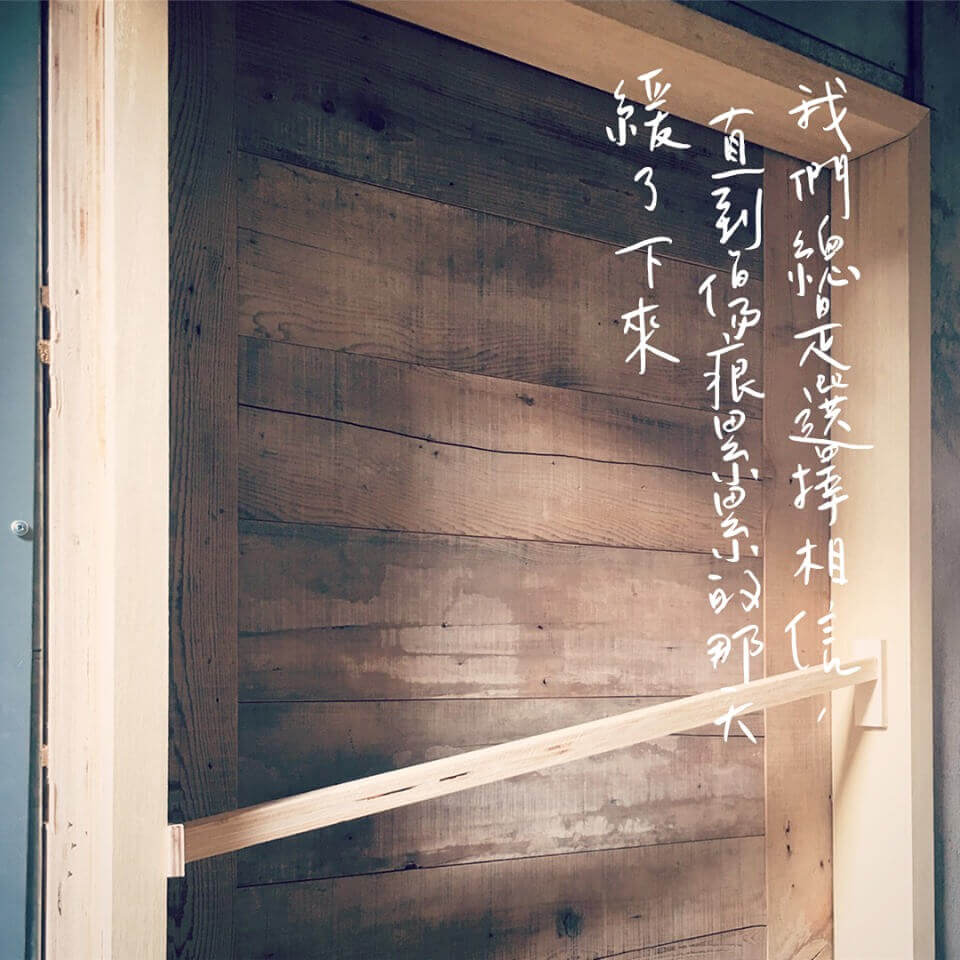 我們總是選擇相信，
直到傷痕累累的那天
緩了下來